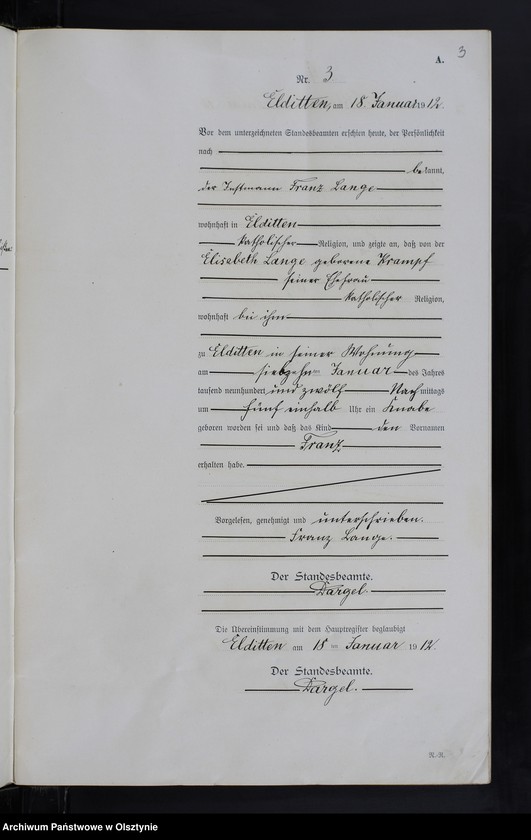 A.
3
Nr. 3
Elditten, am 18. Januar 1912.
Vor dem unterzeichneten Standesbeamten erschien heute, der Persönlichkeit
nach
bekannt,
der Instmann Franz Lange
wohnhaft in Elditten
katholischer Religion, und zeigte an, daß von der
Elisabeth Lange geborene Krampf
seiner Ehefrau
katholischer Religion,
wohnhaft bei ihm
zu Elditten in seiner Wohnung
am siebzehnten Januar des Jahres
tausend neunhundert und zwölf Nachmittags
um fünf einhalb Uhr ein Knabe
geboren worden sei und daß das Kind den Vornamen
Franz
erhalten habe.
Vorgelesen, genehmigt und unterschrieben.
Franz Lange.
Der Standesbeamte.
Dargel.
Die Übereinstimmung mit dem Hauptregister beglaubigt
Elditten am 18 ten Januar 1912.
Der Standesbeamte.
Dargel.
R.-R.
Archiwum Państwowe w Olsztynie